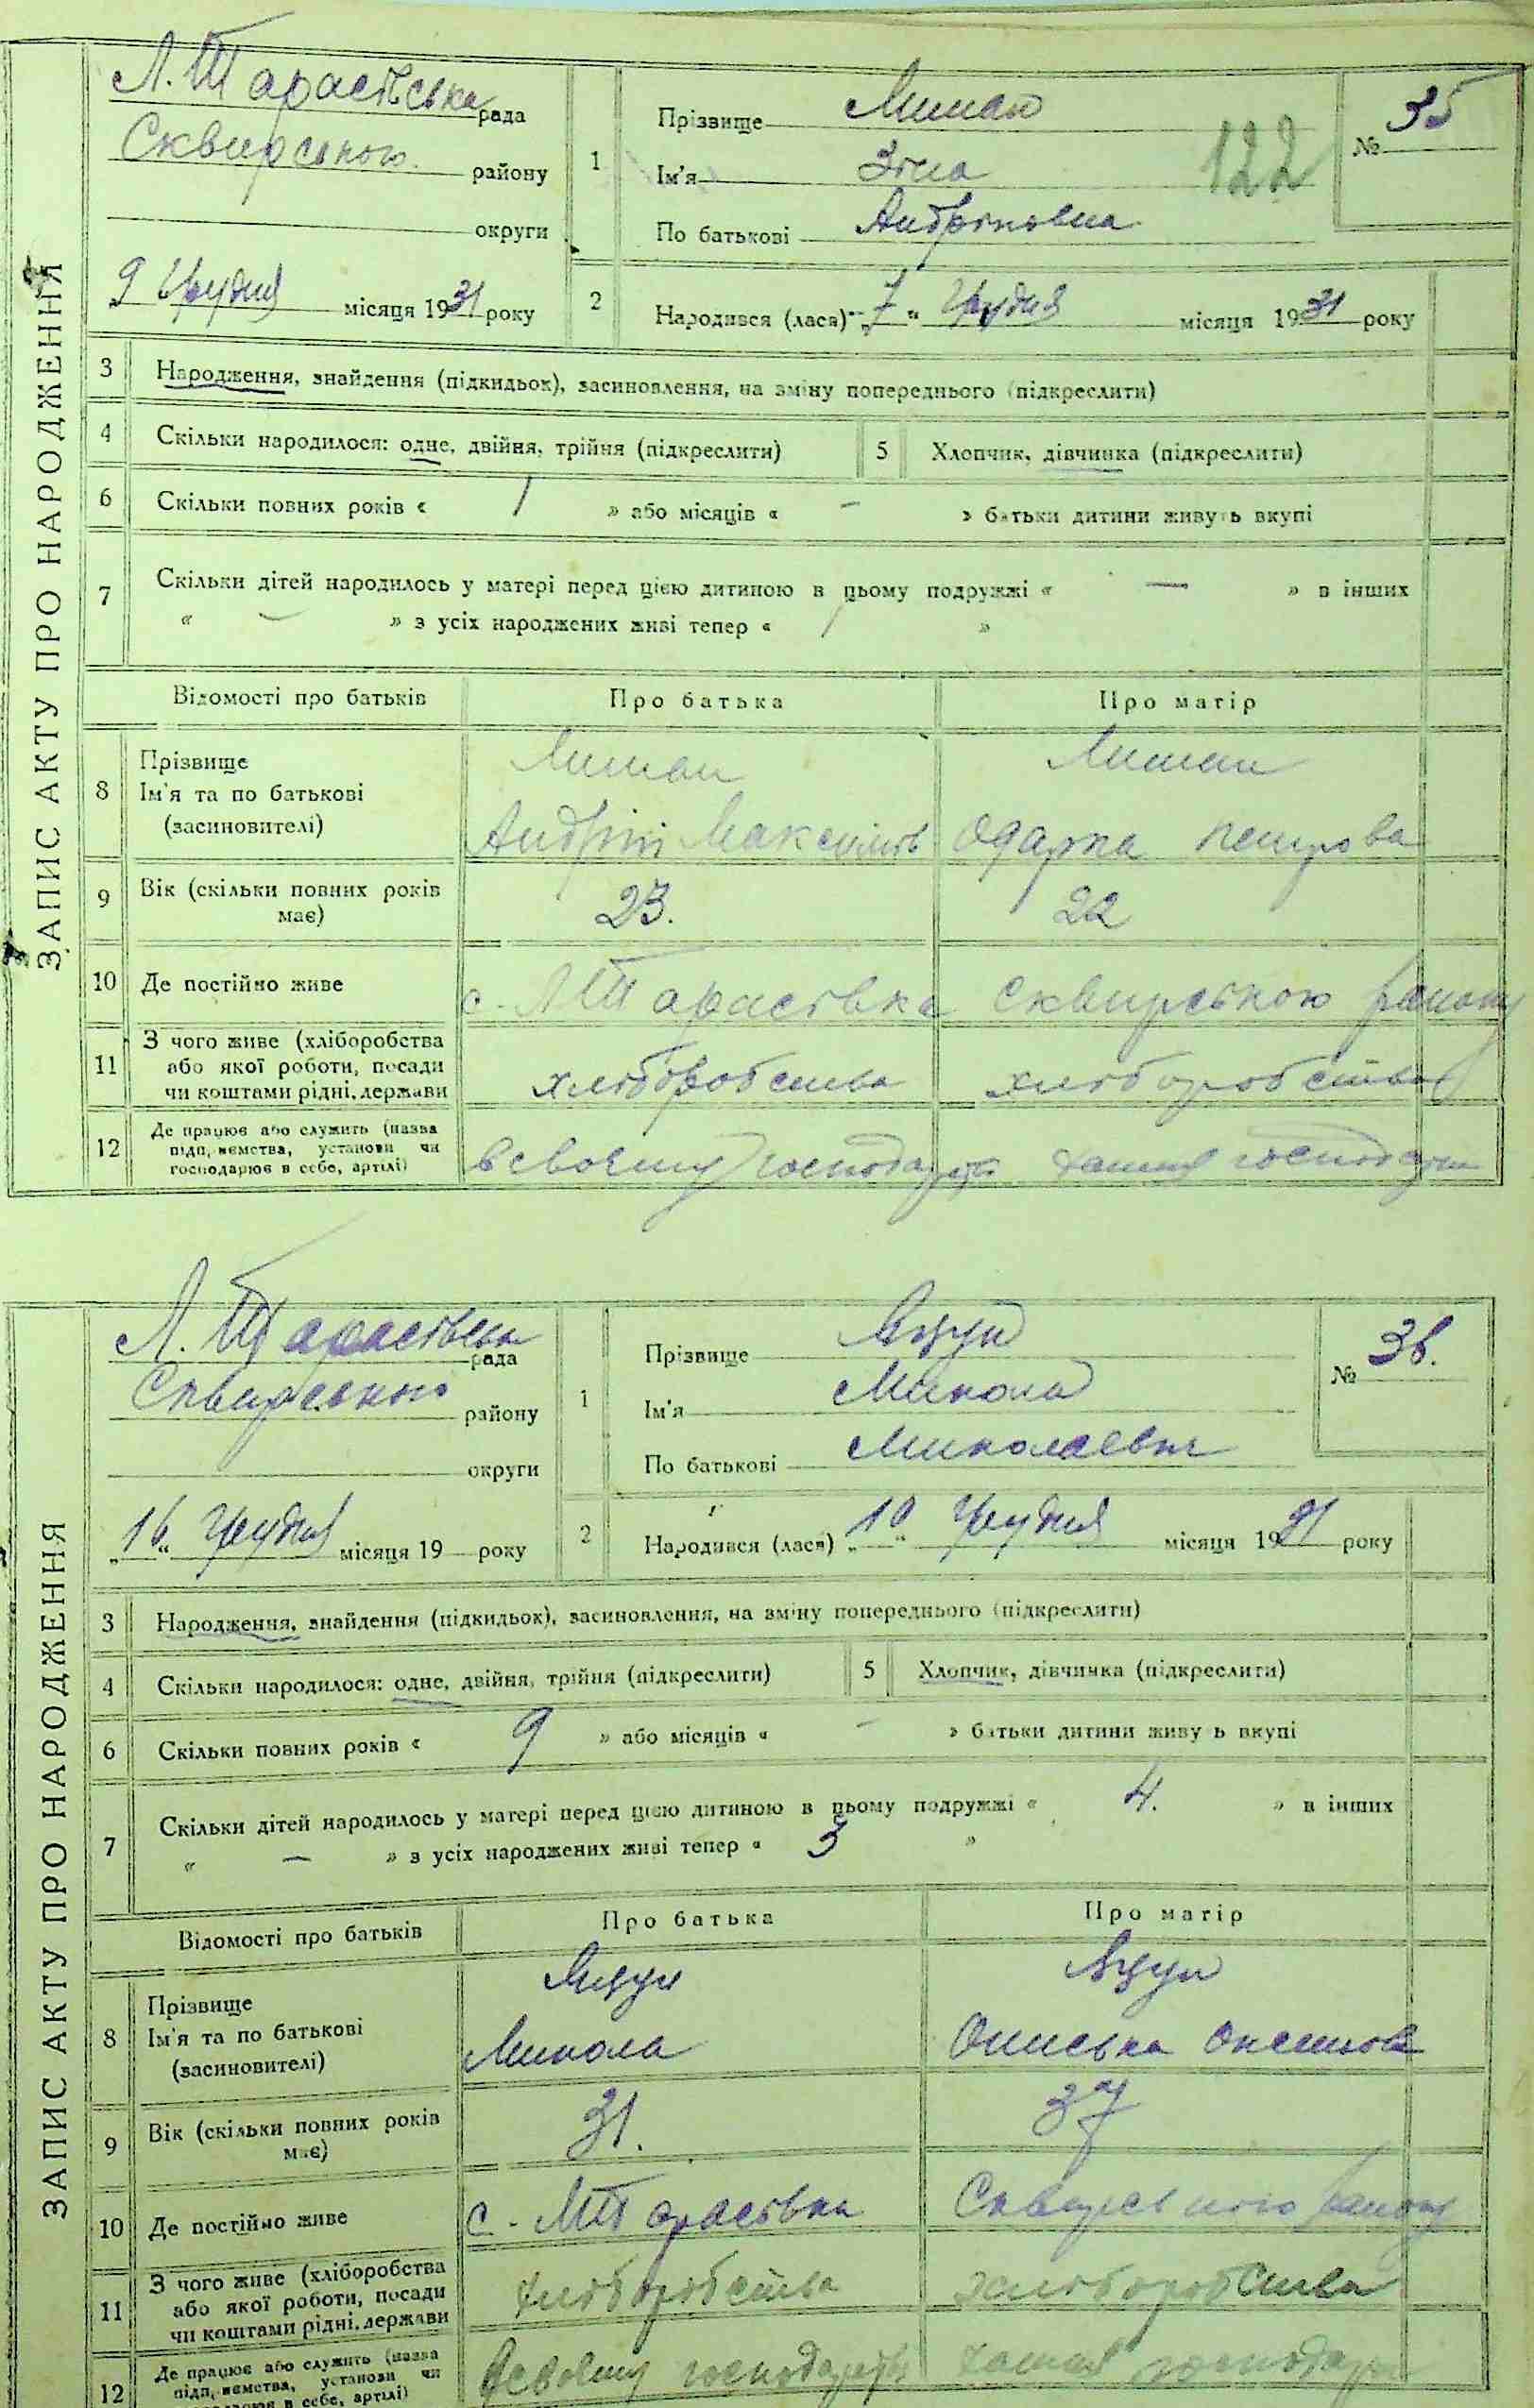 ЗАПИС АКТУ ПРО НАРОДЖЕННЯ
Л. Тарасівська рада
Сквирського району
округи
9 Грудня місяця 1931 року
1
Прізвище Лиман
Ім'я Зіна
По батькові Андріївна
122
№ 35
2
Народився (лася) „7“ Грудня місяця 1931 року
3 Народження, знайдення (підкидьок), засиновлення, на зміну попереднього (підкреслити)
4 Скільки народилося: одне, двійня, трійня (підкреслити)
5 Хлопчик, дівчинка (підкреслити)
6 Скільки повних років « 1 » або місяців « – » батьки дитини живуть вкупі
7 Скільки дітей народилось у матері перед цією дитиною в цьому подружжі « — » в інших
« – » з усіх народжених живі тепер « 1 »
Відомості про батьків Про батька Про матір
8 Прізвище
Ім'я та по батькові
(засиновителі)
Лиман Лиман
Андрій Максимів Одарка Петрова
9 Вік (скільки повних років має) 23. 22
10 Де постійно живе с. Л Тарасівка Сквирського району
11 З чого живе (хліборобства
або якої роботи, посади
чи коштами рідні, держави
хліборобства хліборобства
12 Де працює або служить (назва
підприємства, установи чи
господарює в себе, артілі)
в своєму господарстві
ЗАПИС АКТУ ПРО НАРОДЖЕННЯ
Л. Тарасівська рада
Сквирського району
округи
„16“ Грудня місяця 19 — року
1
Прізвище Яцун
Ім'я Микола
По батькові Миколаевич
№ 36.
2
Народився (лася) „10“ Грудня місяця 1931 року
3 Народження, знайдення (підкидьок), засиновлення, на зміну попереднього (підкреслити)
4 Скільки народилося: одне, двійня, трійня (підкреслити)
5 Хлопчик, дівчинка (підкреслити)
6 Скільки повних років « 9 » або місяців « – » батьки дитини живу ь вкупі
7 Скільки дітей народилось у матері перед цією дитиною в цьому подружжі « 4. » в інших
« — » з усіх народжених живі тепер « 5 »
Відомості про батьків Про батька Про матір
8 Прізвище
Ім'я та по батькові
(засиновителі)
Яцун Яцун
Микола Ониська
9 Вік (скільки повних років має) 31. 37
10 Де постійно живе с. Л Тарасівка Сквирського району
11 З чого живе (хліборобства
або якої роботи, посади
чи коштами рідні, держави
хліборобства хліборобства
12 Де працює або служить (назва
підприємства, установи чи
в себе, артілі)
В своєму господарстві